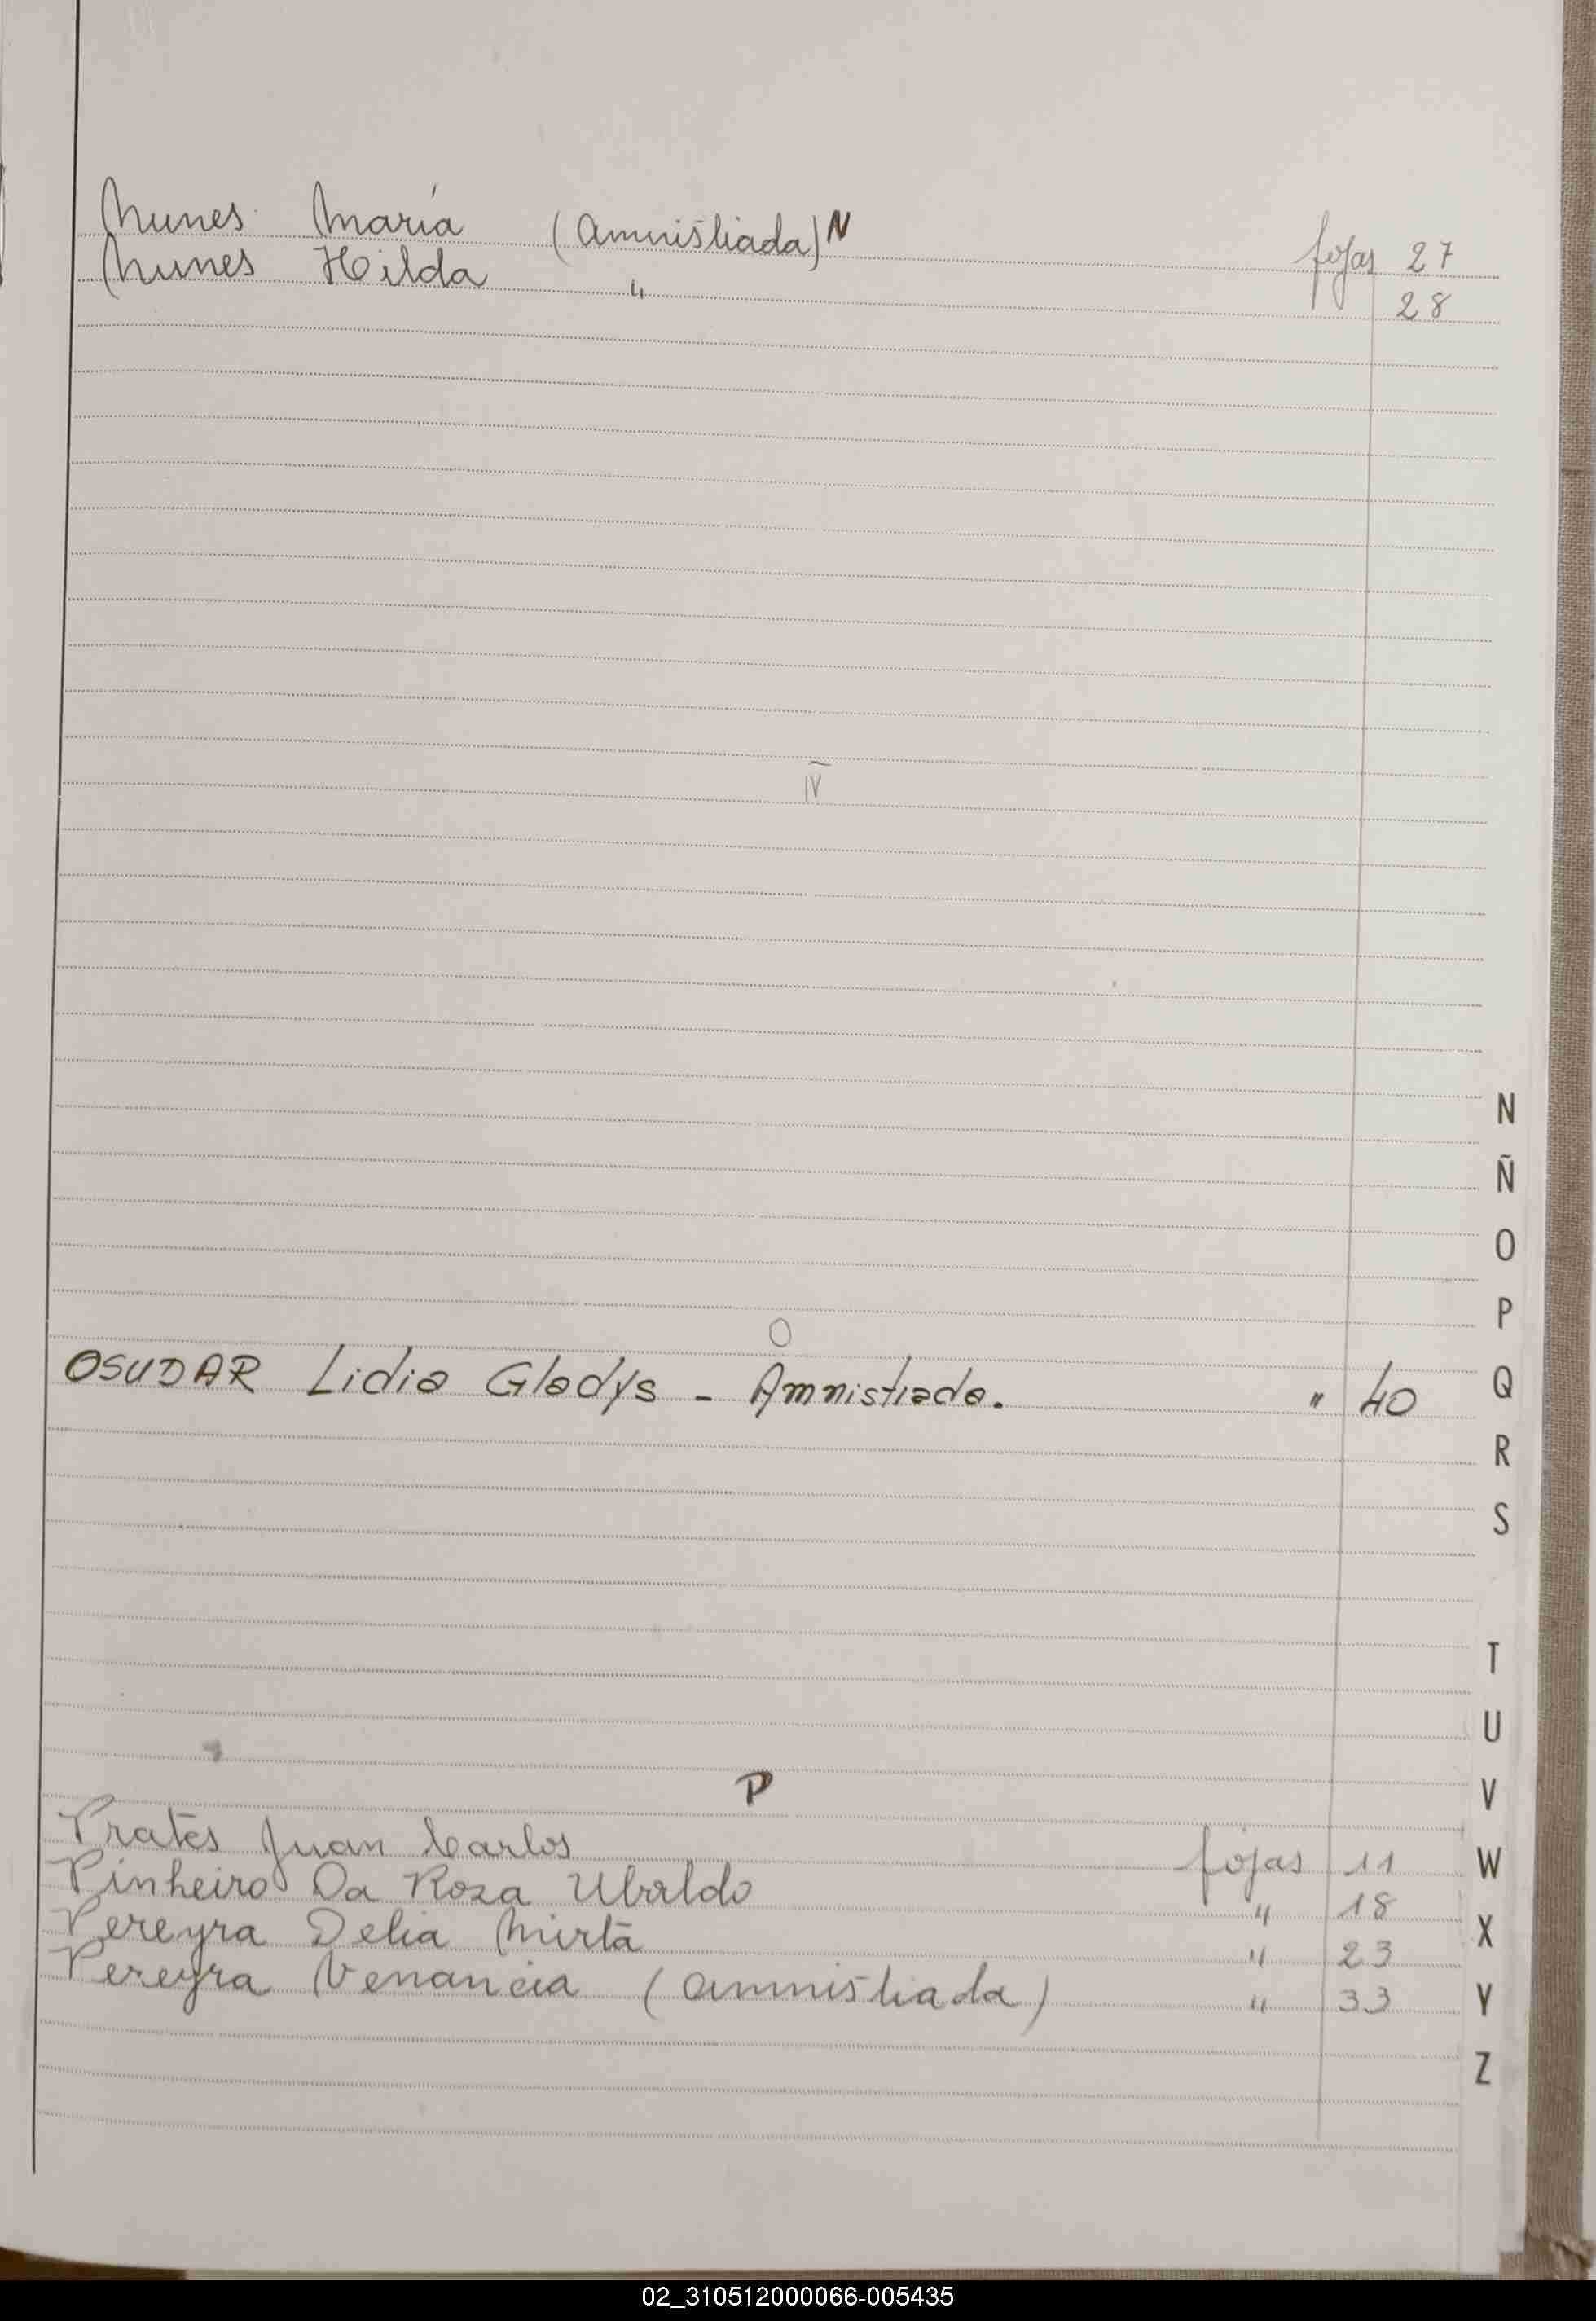 N
Nunes María (amnistiada) fojas 27
Nunes Hilda " 28
IV
O
OSUDAR Lidia Gladys - Amnistiada. " 40
P
Prates Juan Carlos fojas 11
Pinheiro Da Roza Ubaldo " 18
Pereyra Delia Mirta " 23
Pereyra Venancia (amnistiada) " 33
N
Ñ
O
P
Q
R
S
T
U
V
W
X
Y
Z
02_310512000066-005435